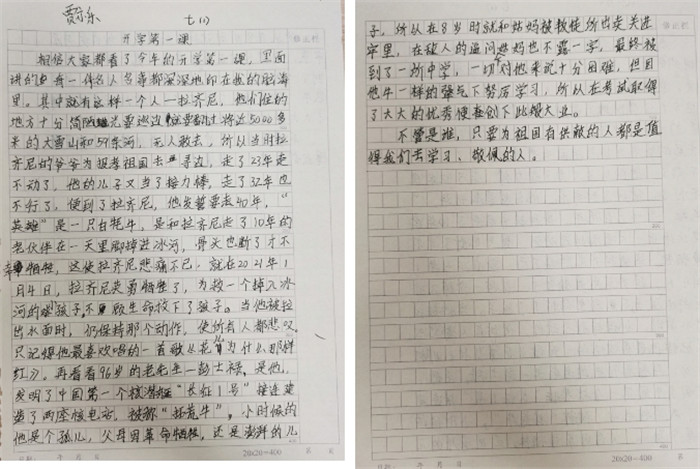 贾子乐
七(1)
开学第一课
相信大家都看了今年的开学第一课,里面
讲的每一件事人名等都深深地印在我的脑海
里。其中就有这样一个人—拉齐尼,他们住的
地方十分简陋要巡边就要翻过将近5000多
米的大雪山和59条河,无人敢去,所以当时拉
齐尼的爷爷为报考祖国去寻边,走了23年走
不动了,他的儿子又当了接力棒,走了32年也
不行了,便到了拉齐尼,他发誓要走40年,“
英雄”是一只白牦牛,是和拉齐尼走了10年的
老伙伴在一天里脚掉进冰河,骨头也断了才不
幸牺牲,这使拉齐尼悲痛不已,就在2021年1
月4日,拉齐尼英勇牺牲了,为救一个掉入冰
河的孩子,不顾生命救下了孩子。当他被拉
出水面时,仍保持那个动作,使所有人都悲叹
只记得他最喜欢唱的一首歌《花儿为什么那样
红》。再看看96岁的老先生—彭士禄,是他,
发明了中国第一个核潜艇“长征1号”接连建
造了两座核电站,被称“拓荒牛”,小时候的
他是个孤儿,父母因革命牺牲,还是澎湃的儿
20×20=400
子,所以在8岁时就和姑妈被叛徒所出卖关进
牢里,在敌人的逼问姑妈也不露一字,最终被
到了一所中学,一切对他来说十分困难,但因
他牛一样的毅力下努力学习,所以在考试取得
了大大的优秀便喜创下此艰大业。
不管是谁,只要为祖国有供献的人都是值
得我们去学习、敬佩的人。
20×20=400